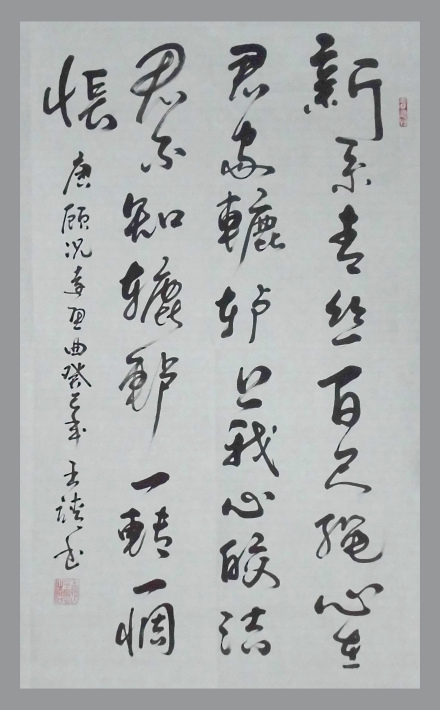 新系青丝百尺绳心在
君家轆轳上我心皎洁
君不知轆轳一轉一惆
悵
唐顾况远思曲癸巳年 王书